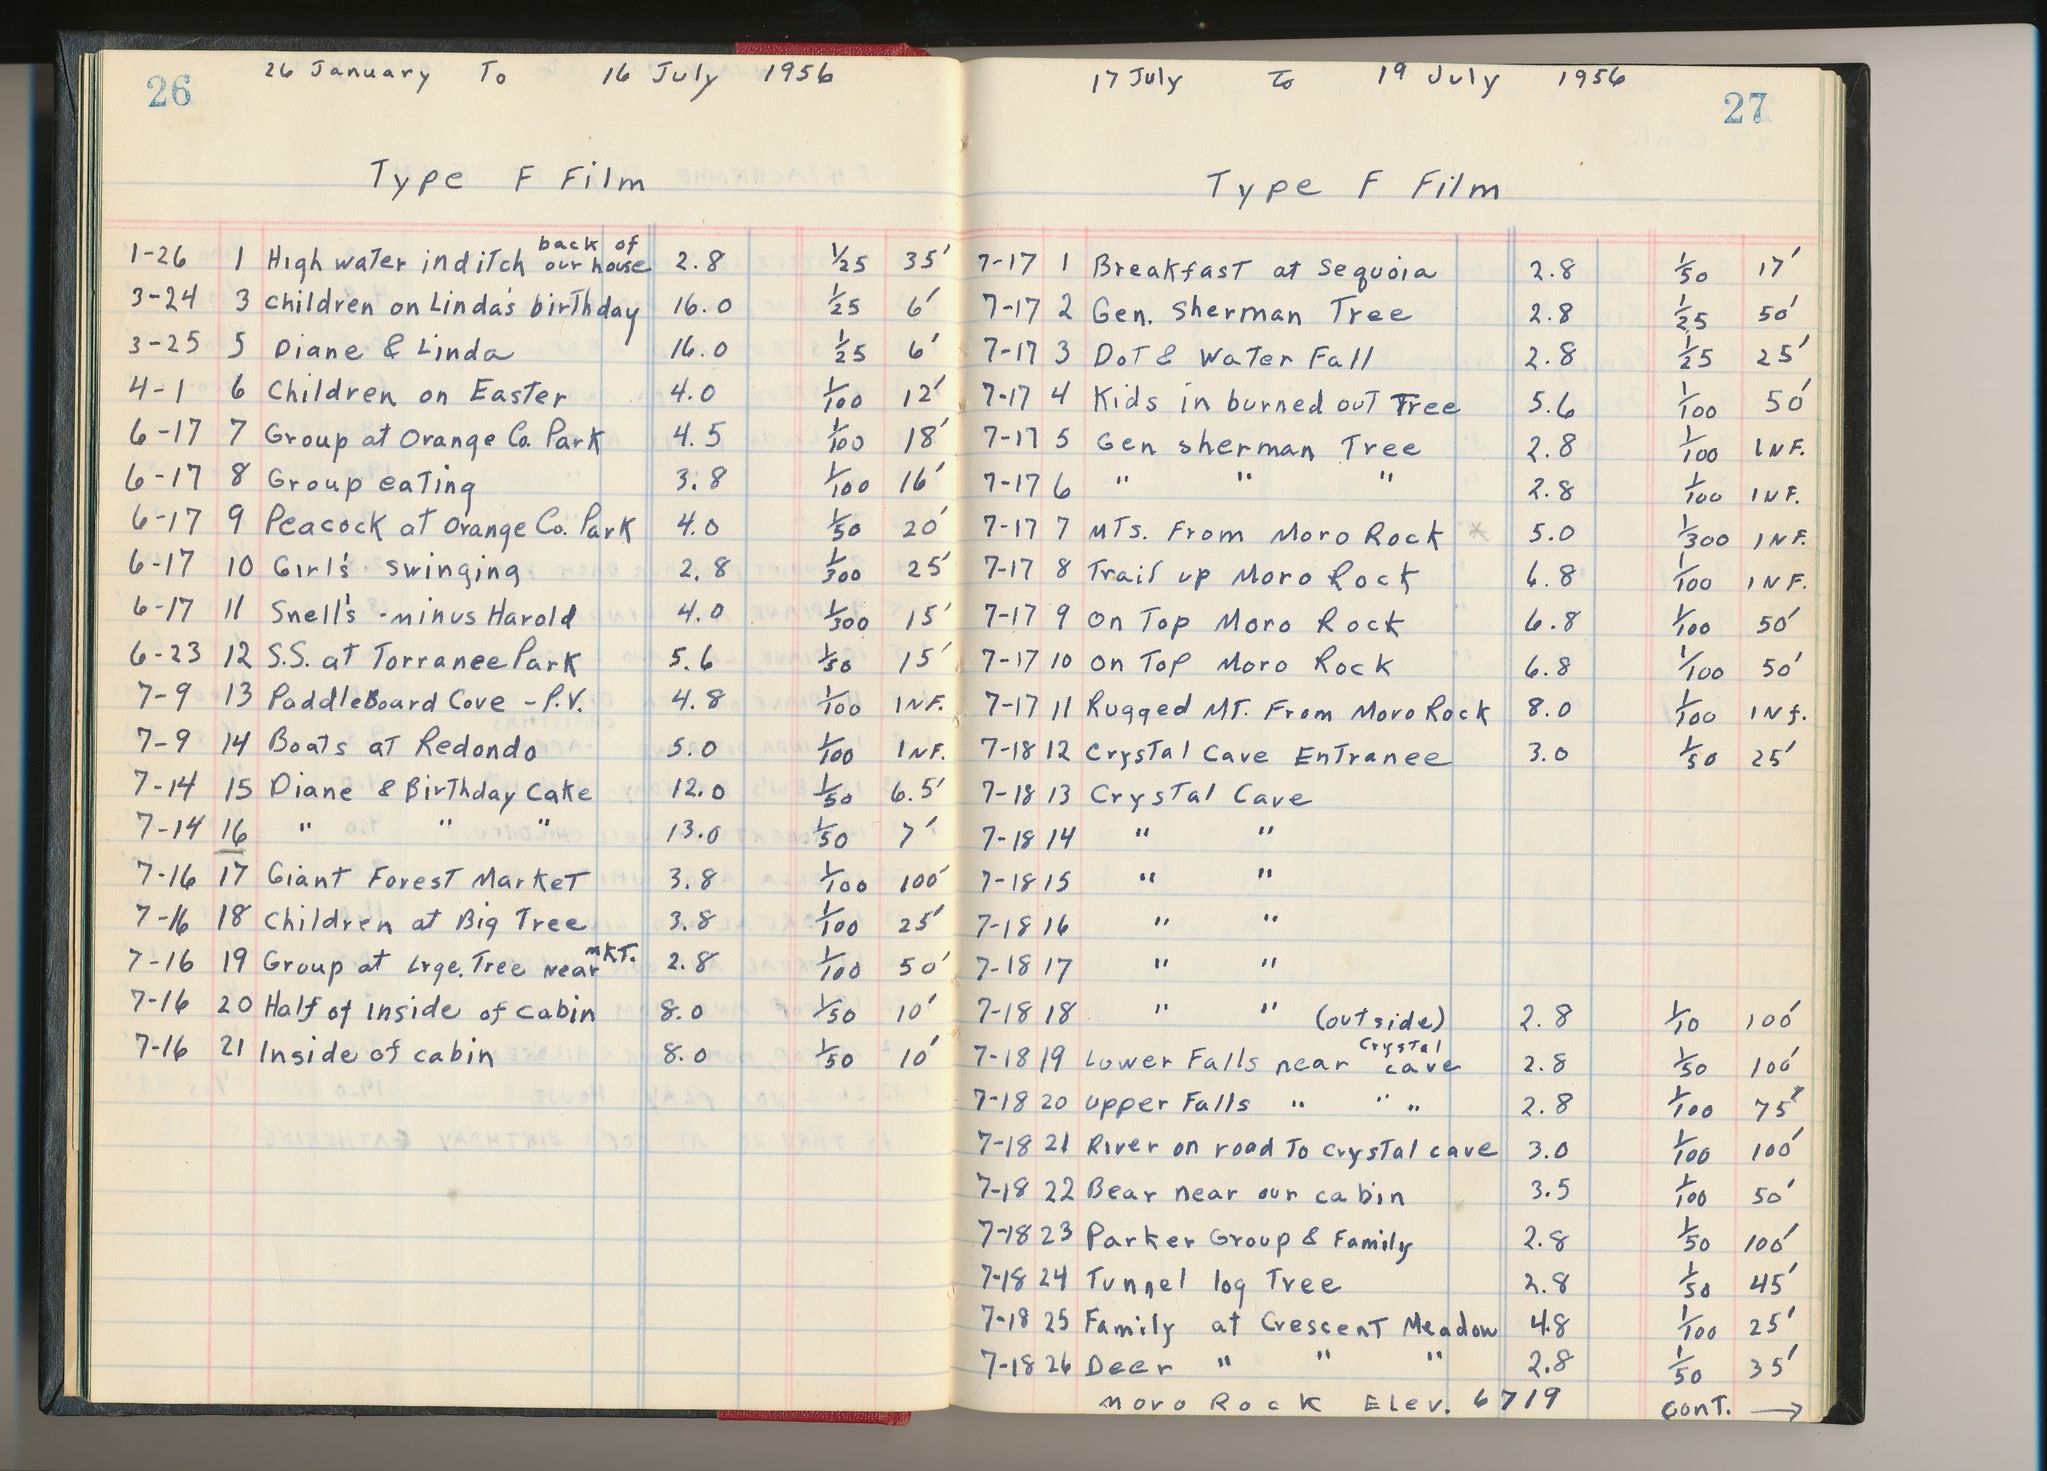 26
26 January To 16 July 1956
Type F Film
1-26 1 High water in ditch back of our house 2.8 1/25 35'
3-24 3 children on Linda's birthday 16.0 1/25 6'
3-25 5 Diane & Linda 16.0 1/25 6'
4-1 6 Children on Easter 4.0 1/100 12'
6-17 7 Group at Orange Co. Park 4.5 1/100 18'
6-17 8 Group eating 3.8 1/100 16'
6-17 9 Peacock at Orange Co. Park 4.0 1/50 20'
6-17 10 Girl's swinging 2.8 1/300 25'
6-17 11 Snell's - minus Harold 4.0 1/300 15'
6-23 12 S.S. at Torrance Park 5.6 1/50 15'
7-9 13 PaddleBoard Cove - P.V. 4.8 1/100 INF.
7-9 14 Boats at Redondo 5.0 1/100 INF.
7-14 15 Diane & Birthday Cake 12.0 1/50 6.5'
7-14 16 " " " 13.0 1/50 7'
7-16 17 Giant Forest Market 3.8 1/100 100'
7-16 18 Children at Big Tree 3.8 1/100 25'
7-16 19 Group at Lrge. Tree near MKT. 2.8 1/100 50'
7-16 20 Half of Inside of cabin 8.0 1/50 10'
7-16 21 Inside of cabin 8.0 1/50 10'
27
17 July To 19 July 1956
Type F Film
7-17 1 Breakfast at Sequoia 2.8 1/50 17'
7-17 2 Gen. Sherman Tree 2.8 1/25 50'
7-17 3 Dot & Water Fall 2.8 1/25 25'
7-17 4 Kids in burned out Tree 5.6 1/100 50'
7-17 5 Gen Sherman Tree 2.8 1/100 INF.
7-17 6 " " " 2.8 1/100 INF.
7-17 7 MTS. From Moro Rock * 5.0 1/300 INF.
7-17 8 Trail up Moro Rock 6.8 1/100 INF.
7-17 9 On Top Moro Rock 6.8 1/100 50'
7-17 10 On Top Moro Rock 6.8 1/100 50'
7-17 11 Rugged MT. From Moro Rock 8.0 1/100 INf.
7-18 12 Crystal Cave Entrance 3.0 1/50 25'
7-18 13 Crystal Cave
7-18 14 " "
7-18 15 " "
7-18 16 " "
7-18 17 " "
7-18 18 " " (outside) 2.8 1/10 100'
7-18 19 Lower Falls near Crystal cave 2.8 1/50 100'
7-18 20 Upper Falls " " " 2.8 1/100 75'
7-18 21 River on road to crystal cave 3.0 1/100 100'
7-18 22 Bear near our cabin 3.5 1/100 50'
7-18 23 Parker Group & Family 2.8 1/50 100'
7-18 24 Tunnel log Tree 2.8 1/50 45'
7-18 25 Family at Crescent Meadow 4.8 1/100 25'
7-18 26 Deer " " " 2.8 1/50 35'
Moro Rock Elev. 6719 Cont. →